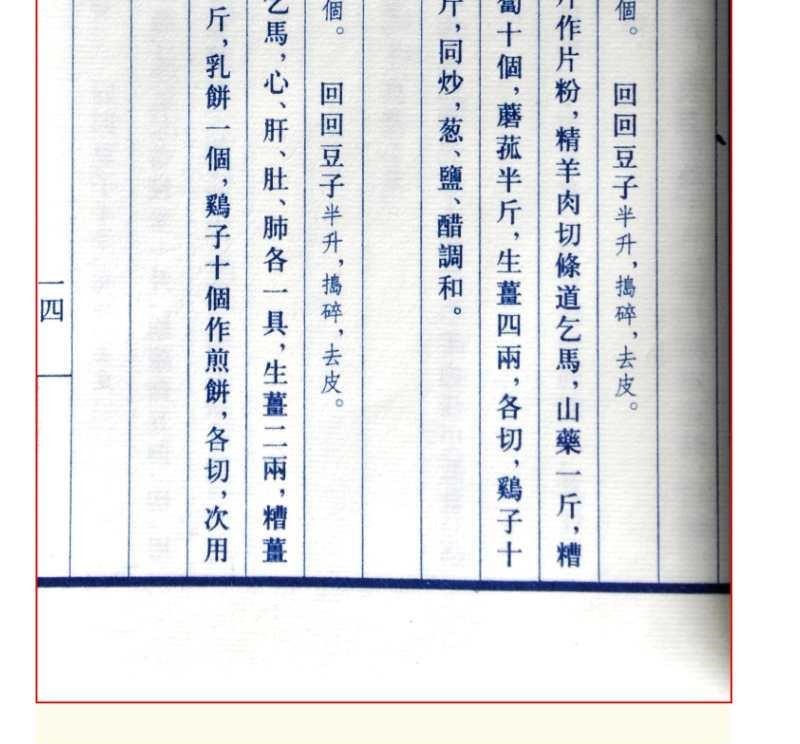 個。　回回豆子半升，搗碎，去皮。
斤作片粉，精羊肉切條道乞馬，山藥一斤，糟
蔔十個，蘑菰半斤，生薑四兩，各切，鷄子十
斤，同炒，葱、鹽、醋調和。
個。　回回豆子半升，搗碎，去皮。
乞馬，心、肝、肚、肺各一具，生薑二兩，糟薑
斤，乳餅一個，鷄子十個作煎餅，各切，次用
一四